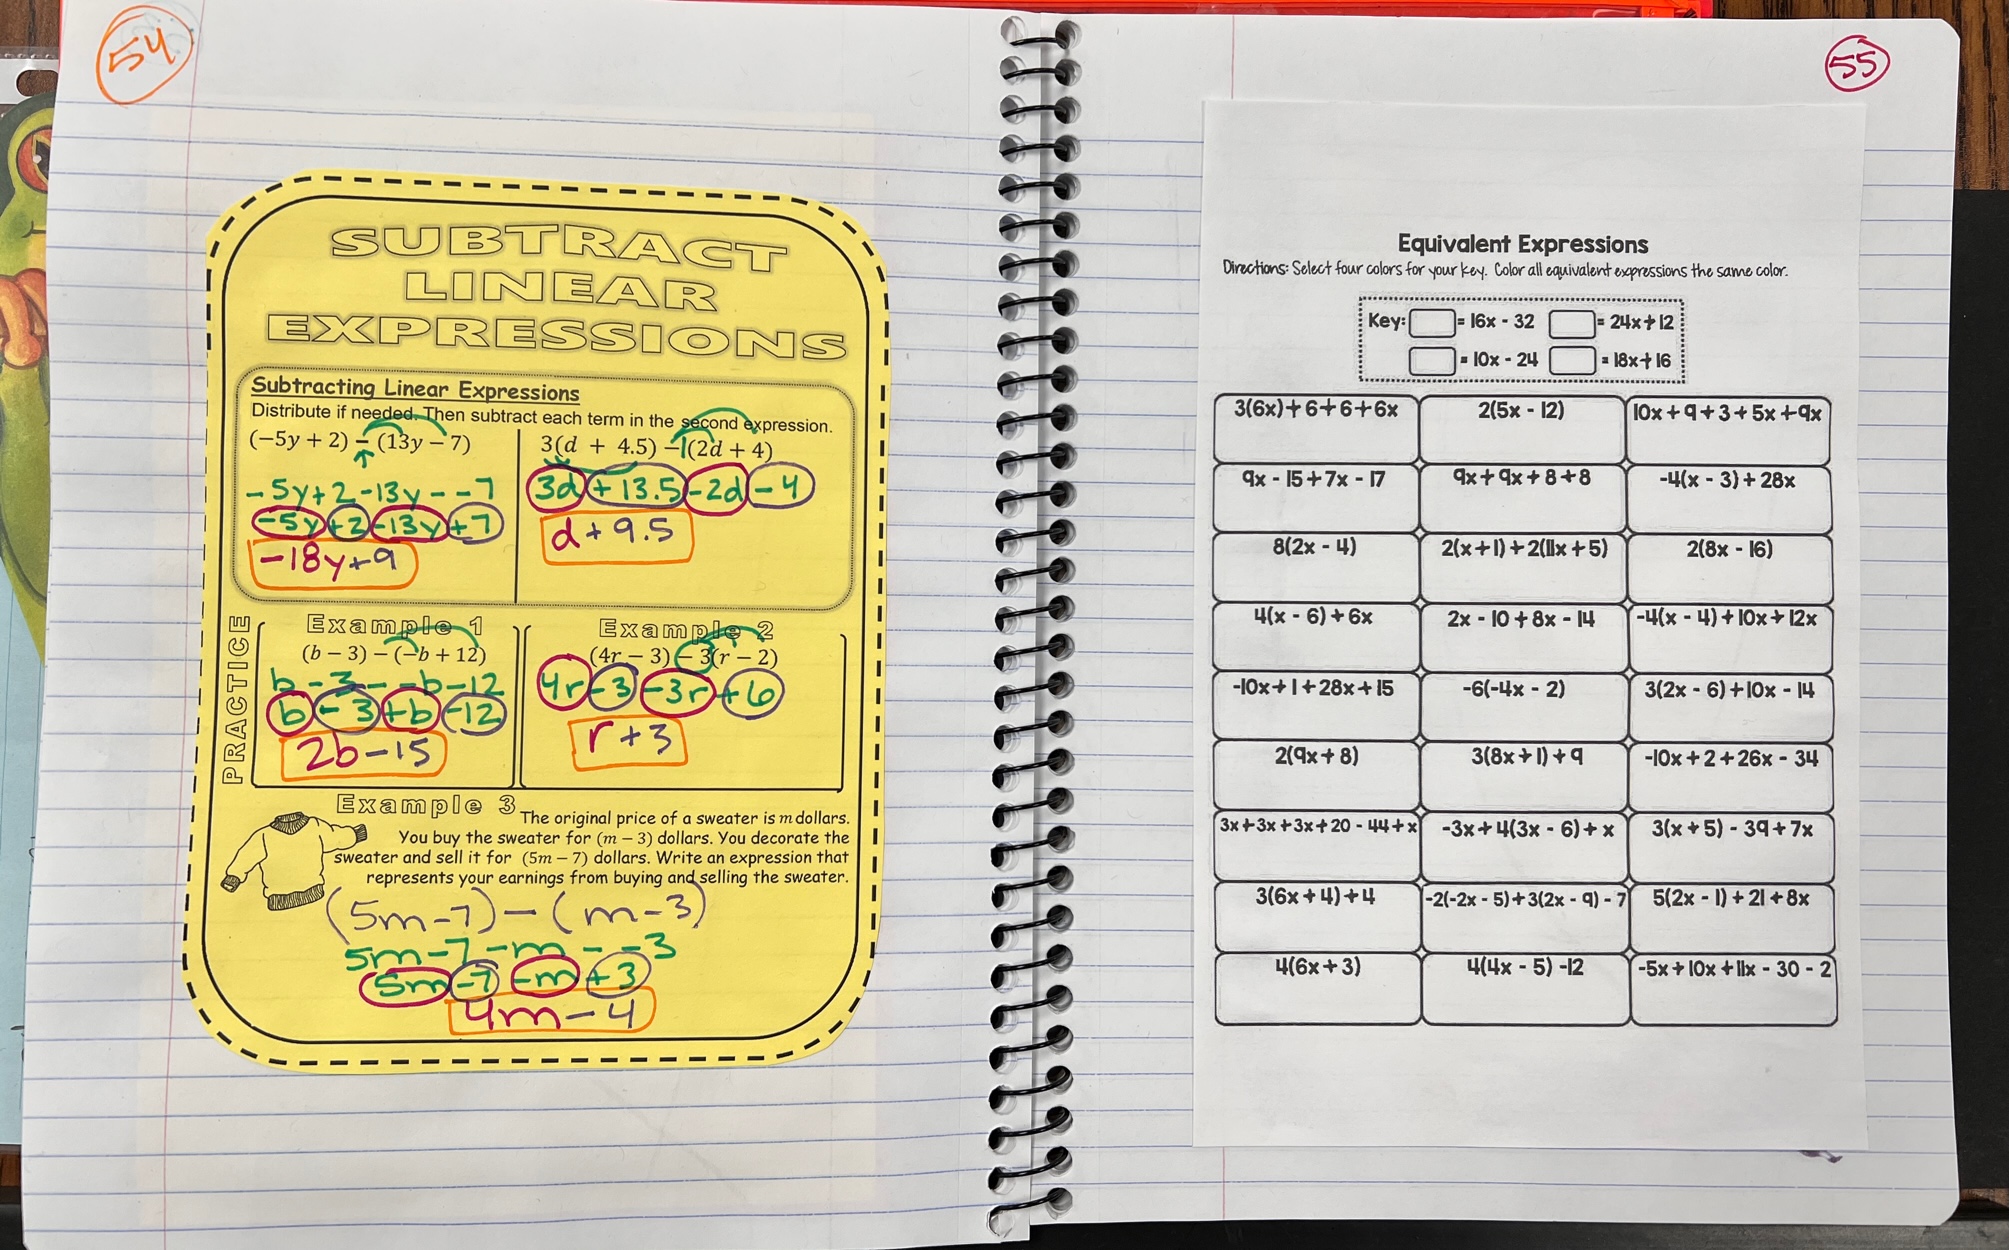 54
SUBTRACT
LINEAR
EXPRESSIONS
Subtracting Linear Expressions
Distribute if needed. Then subtract each term in the second expression.
(−5y + 2) − (13y − 7)
-5y+2-13y--7
-5y+2-13y+7
-18y+9
3(d + 4.5) -1(2d + 4)
3d+13.5-2d-4
d+9.5
PRACTICE
Example 1
(b − 3) − (−b + 12)
b-3--b-12
b-3+b-12
2b-15
Example 2
(4r − 3) − 3(r − 2)
4r-3-3r+6
r+3
Example 3
The original price of a sweater is m dollars.
You buy the sweater for (m − 3) dollars. You decorate the
sweater and sell it for (5m − 7) dollars. Write an expression that
represents your earnings from buying and selling the sweater.
(5m-7)-(m-3)
5m-7-m--3
5m-7-m+3
4m-4
55
Equivalent Expressions
Directions: Select four colors for your key. Color all equivalent expressions the same color.
Key: = 16x - 32 = 24x+12
= 10x - 24 = 18x+16
3(6x)+6+6+6x 2(5x - 12) 10x+9+3+5x+9x
9x - 15+7x - 17 9x+9x+8+8 -4(x - 3)+28x
8(2x - 4) 2(x+1)+2(11x+5) 2(8x - 16)
4(x - 6)+6x 2x - 10+8x - 14 -4(x - 4)+10x+12x
-10x+1+28x+15 -6(-4x - 2) 3(2x - 6)+10x - 14
2(9x+8) 3(8x+1)+9 -10x+2+26x - 34
3x+3x+3x+20 - 44+x -3x+4(3x - 6)+x 3(x+5) - 39+7x
3(6x+4)+4 -2(-2x - 5)+3(2x - 9) - 7 5(2x - 1)+21+8x
4(6x+3) 4(4x - 5) -12 -5x+10x+11x - 30 - 2